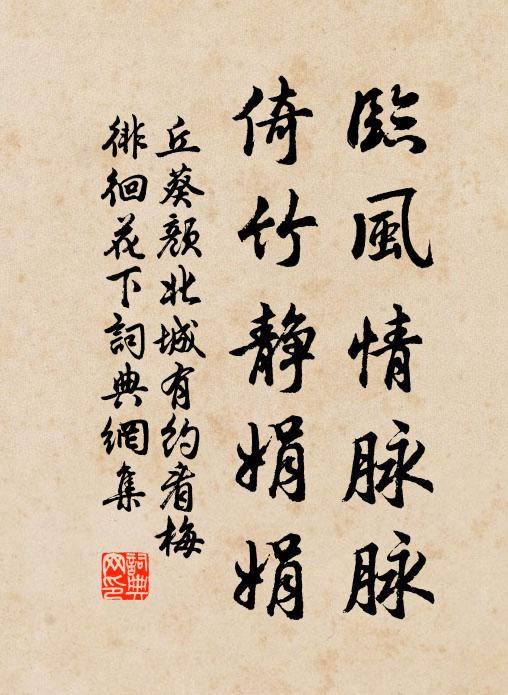 臨風情脉脉
倚竹静娟娟
丘葵顏北城有約看梅
徘徊花下詞典網集
詞典
網印